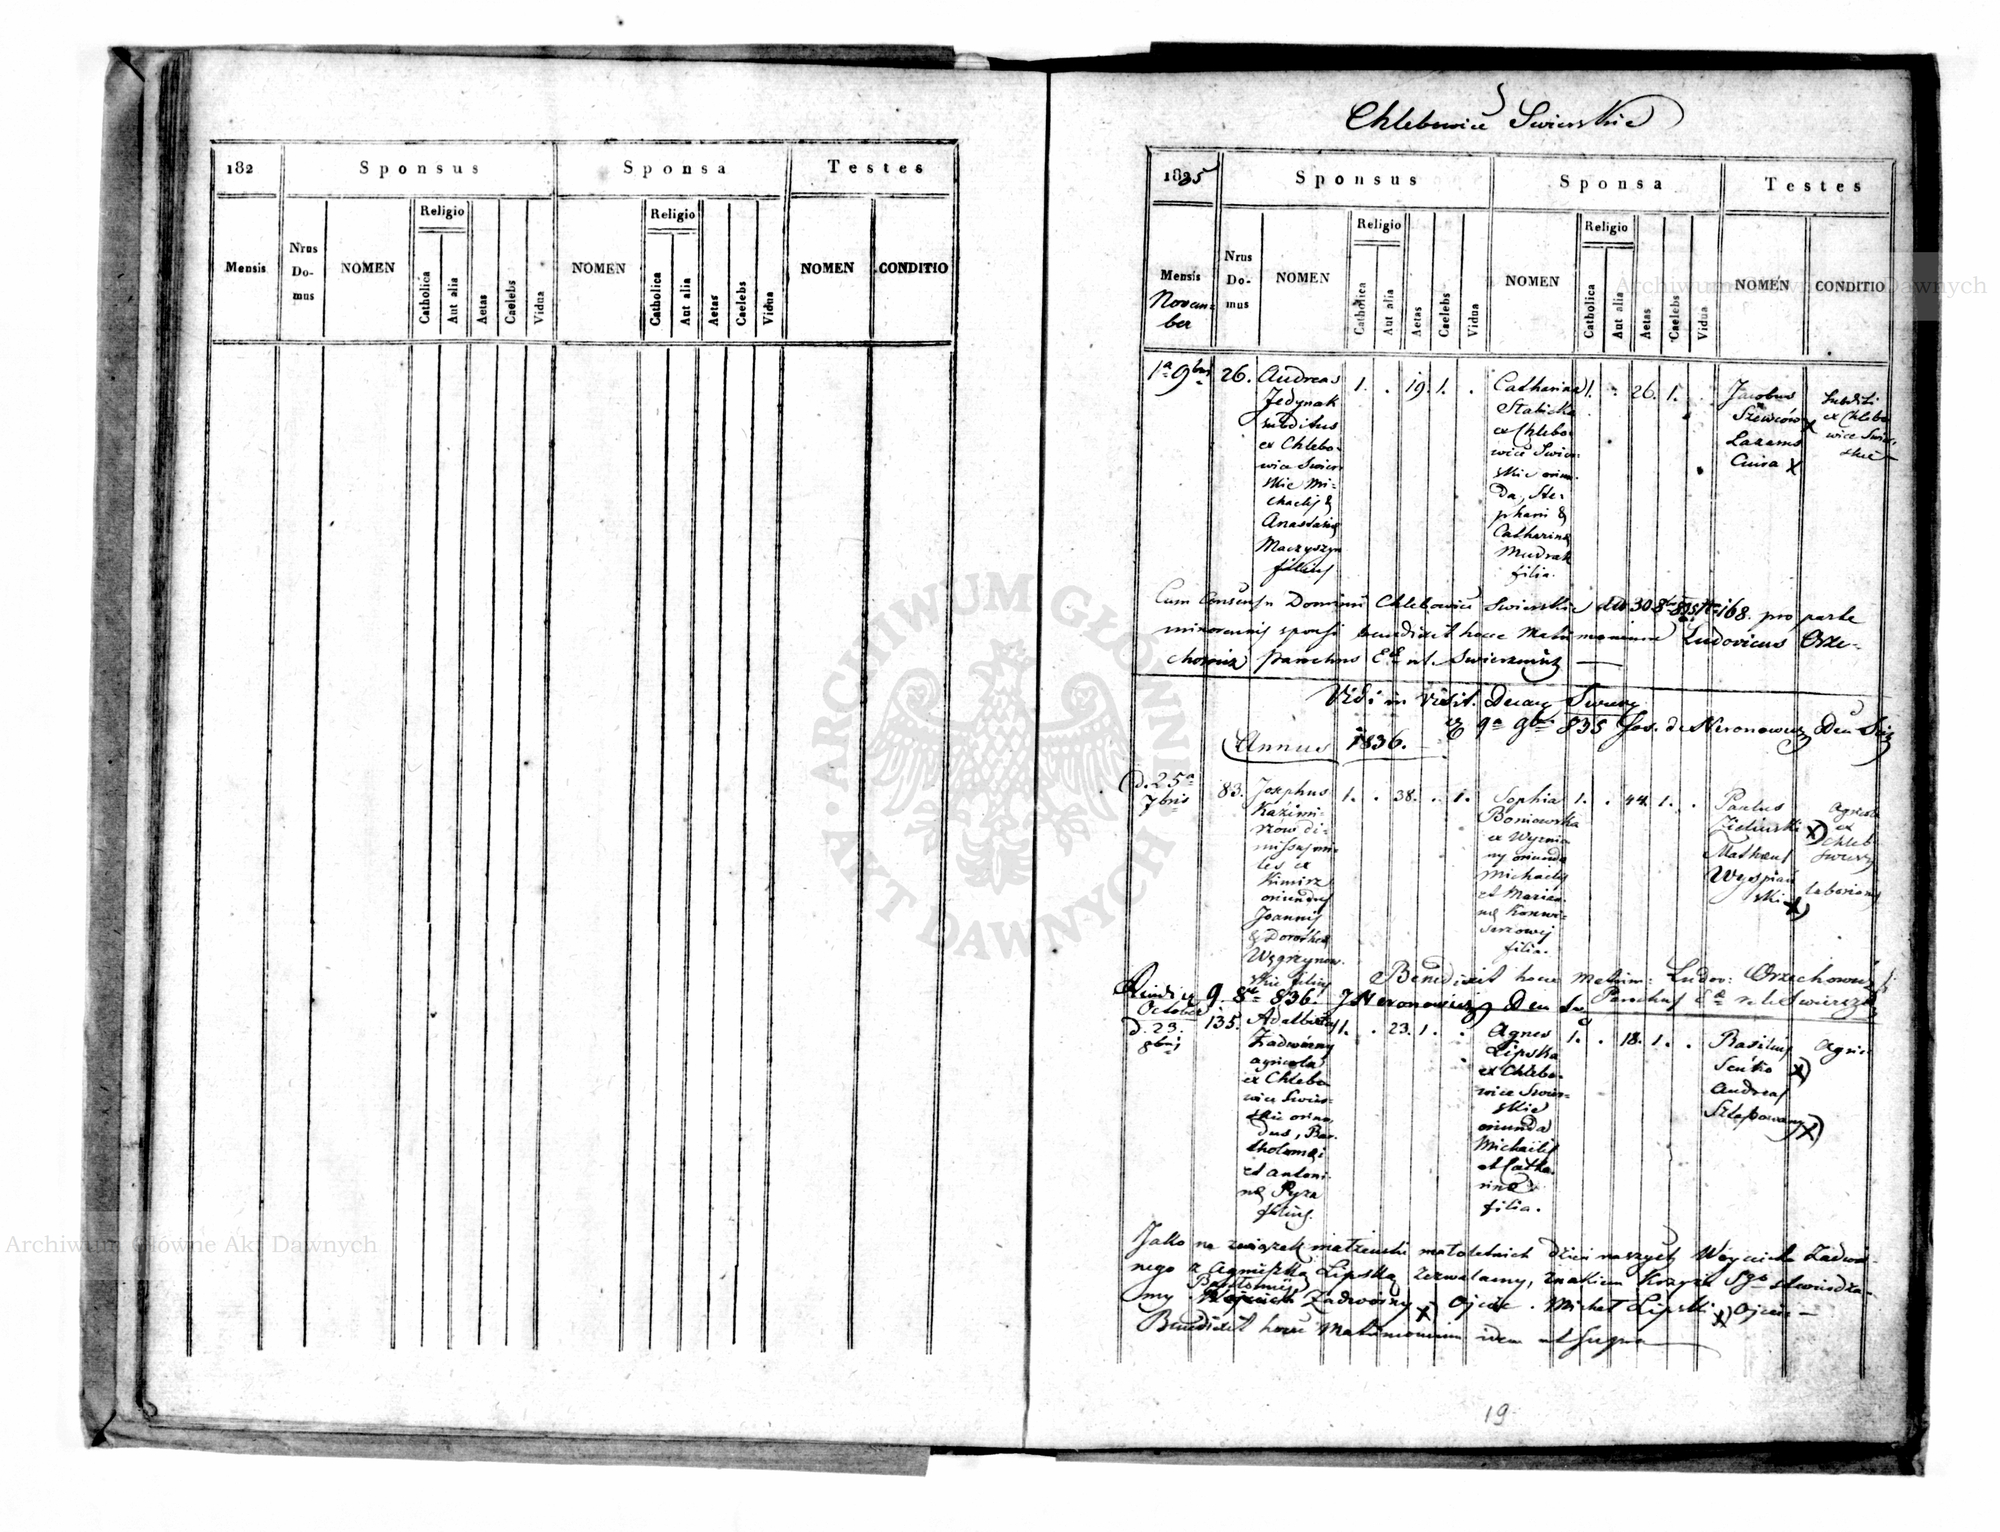 182
Sponsus
Sponsa
Testes
Mensis
Nrus
Do-
mus
NOMEN
Religio
Catholica
Aut alia
Aetas
Caelebs
Vidua
NOMEN
Religio
Catholica
Aut alia
Aetas
Caelebs
Vidua
NOMEN
CONDITIO
Chlebowice Swierskie
1835
Sponsus
Sponsa
Testes
Mensis
Novem-
ber
Nrus
Do-
mus
NOMEN
Religio
Catholica
Aut alia
Aetas
Caelebs
Vidua
NOMEN
Religio
Catholica
Aut alia
Aetas
Caelebs
Vidua
NOMEN
CONDITIO
1a 9bris
26.
Andreas
Jedynak
ex Chlebo-
wice Swier-
skie Mi-
chaelis &
Anastasiæ
Maczyszyn
filius
1. . 19. 1. .
Catharina
Stabicka
ex Chlebo-
wice Swier-
skie oriun-
da, Ste-
phani &
Catharinæ
Mudrak
filia.
1. . 26. 1. .
Jacobus
Szewców x
Lazarus
Cuira x
Subditi
ex Chlebo-
wice Swier-
skie
Cum Consensu Dominii Chlebowice Swierskie ddo 30 8bris 835 N. 168. pro parte
minorennis sponsi benedixit hocce Matrimonium Ludovicus Orze-
chowicz Parochus
Vidi in visit. Decan.
9a 9bris 835 Jos. de Neronowicz
Annus 1836.
d. 25a
7bris
83.
Josephus
Kazimi-
rzów di-
missus mi-
les ex
Kimirz
oriundus
Joannis
& Dorotheæ
Węgrzynow-
skie filius
1. . 38. . 1.
Sophia
Boniowska
ex Wyznia-
ny oriunda
Michaelis
et Marian-
næ
filia.
1. . 44. 1. .
Paulus
Zieliński x)
Mathæus
Wyspiań-
ski x)
Agricola
ex
Chleb
Swierz
laboriosus
Benedixit hocce Matrim: Ludov: Orzechowicz
9. 8br 836. J Neronowicz
Parochus
October
d. 23.
8bris
135.
Adalbertus
Zadworny
agricola
ex Chlebo-
wice Swier-
skie oriun-
dus, Bar-
tholomæi
et Antoni-
næ Pyza
filius.
1. . 23. 1. .
Agnes
Lipska
ex Chlebo-
wice Swier-
skie
oriunda
Michaelis
et Catha-
rinæ
filia.
1. . 18. 1. .
Basilius
Seńko x)
Andreas
x)
Agric
Jako na związek małżeński małoletnich dzieci naszych Woyciecha Zadwor-
nego z Agnieszką Lipską zezwalamy, znakiem Krzyża Sgo stwierdza-
my Bartłomiej Zadworny x Ojciec. Michał Lipski x) Ojciec —
Benedixit hocce Matrimonium idem ut supra
19
ARCHIWUM GŁÓWNE
AKT DAWNYCH
Archiwum Główne Akt Dawnych
Archiwum Główne Akt Dawnych